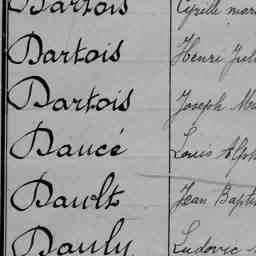 Dartois Cyrille
Dartois Henri
Dartois Joseph
Daucé Louis
Dault Jean
Dauly Ludovic